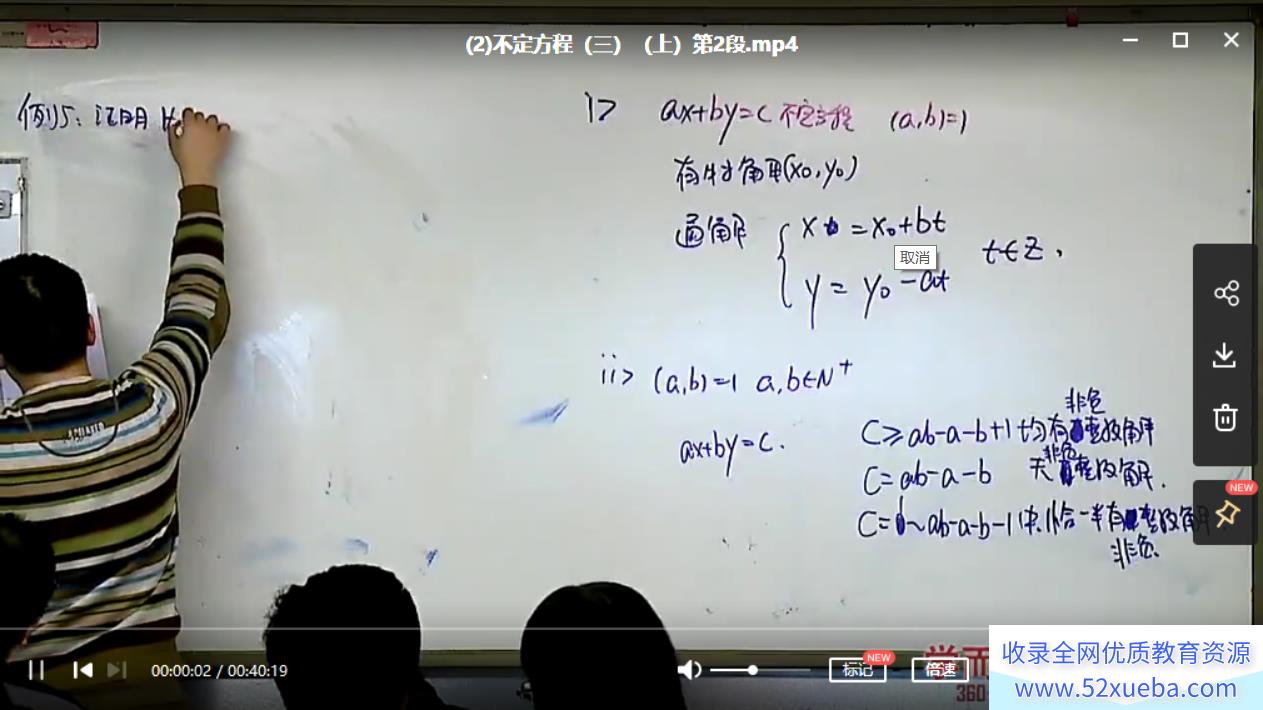 (2)不定方程（三）（上）第2段.mp4
例5：证明 ∀
i> ax+by=c 不定方程 (a,b)=1
有特解(x₀,y₀)
通解 { x = x₀+bt
y = y₀-at
t∈Z，
取消
ii> (a,b)=1 a,b∈N⁺
ax+by=c.
C≥ab-a-b+1 均有非负整数解
C=ab-a-b 无非负整数解.
C=0~ab-a-b-1中,恰一半有非负整数解
NEW
00:00:02 / 00:40:19
标记
NEW
倍速
学而
360
收录全网优质教育资源
www.52xueba.com